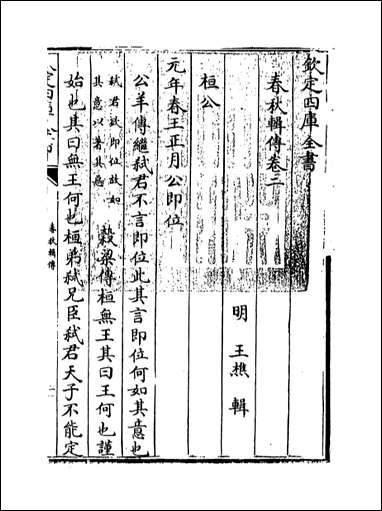 欽定四庫全書
春秋輯傳卷三
明 王樵 輯
桓公
元年春王正月公即位
公羊傳繼弑君不言即位此其言即位何如其意也
弑君欲即位故如
其意以著其惡
穀梁傳桓無王其曰王何也謹
始也其曰無王何也桓弟弑兄臣弑君天子不能定
春秋輯傳